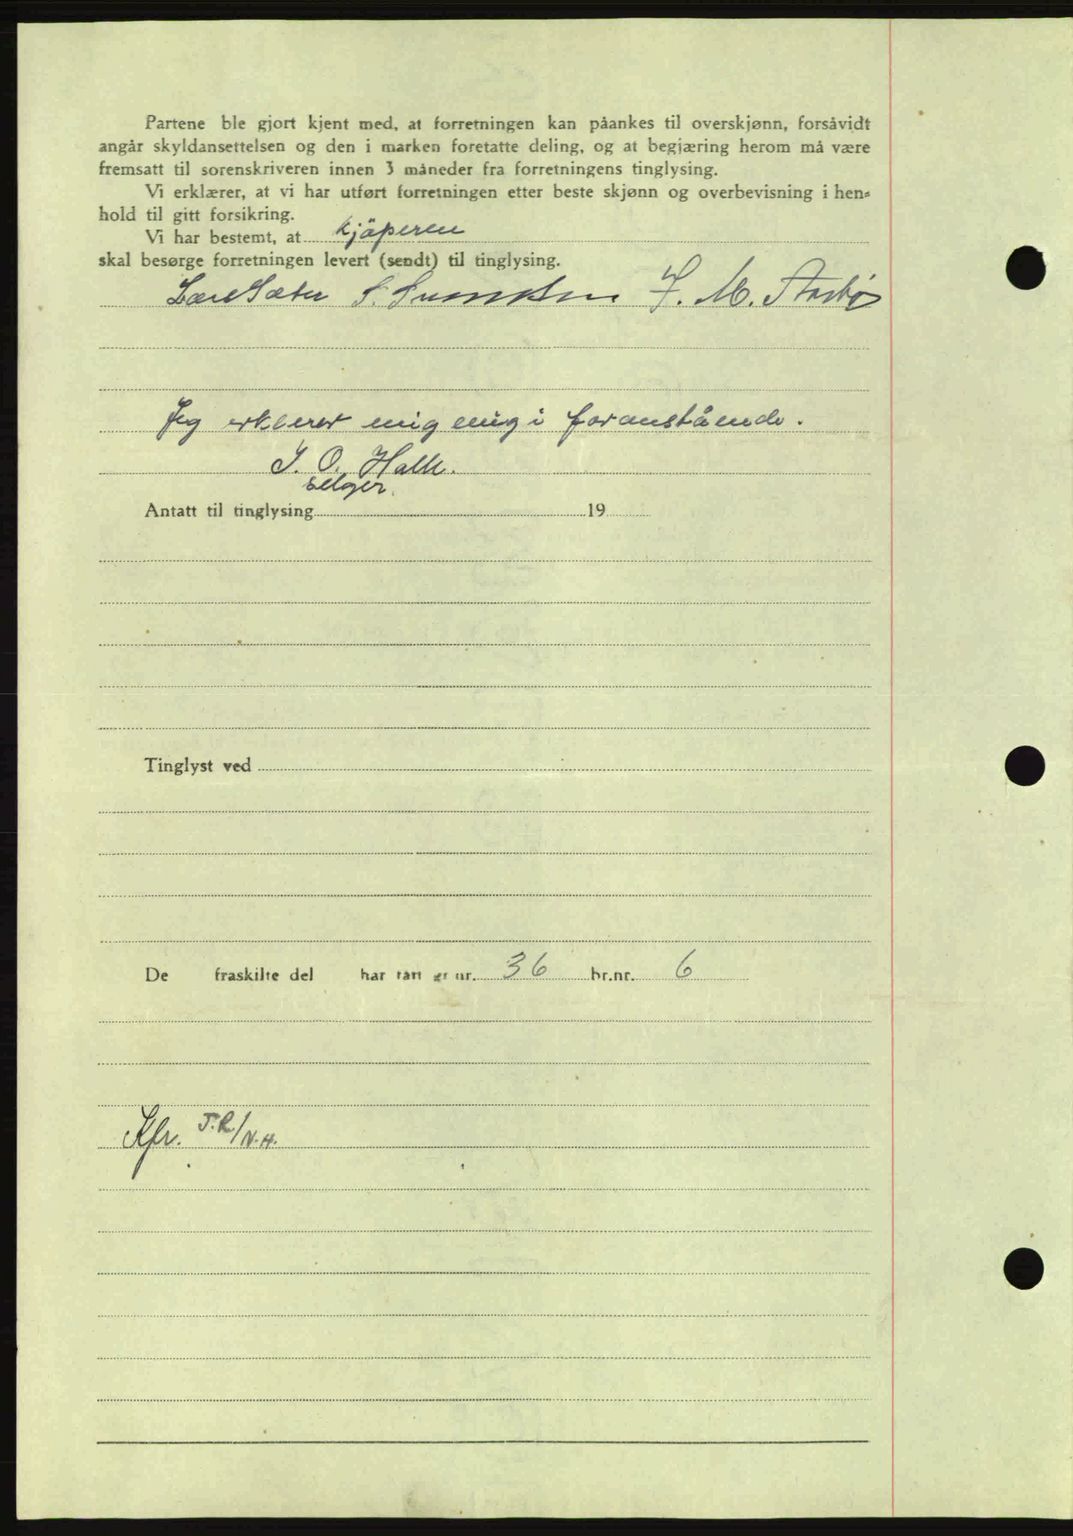 Partene ble gjort kjent med, at forretningen kan påankes til overskjønn, forsåvidt
angår skyldansettelsen og den i marken foretatte deling, og at begjæring herom må være
fremsatt til sorenskriveren innen 3 måneder fra forretningens tinglysing.
Vi erklærer, at vi har utført forretningen etter beste skjønn og overbevisning i hen-
hold til gitt forsikring.
Vi har bestemt, at kjöperen
skal besørge forretningen levert (sendt) til tinglysing.
Lars Sæter S. J. M.
Jeg erklerer mig enig i foranstående.
J. O. Halle.
selger.
Antatt til tinglysing 19
Tinglyst ved
De fraskilte del har fått gr.nr. 36 br.nr. 6
Kfr. T.R/N.H.